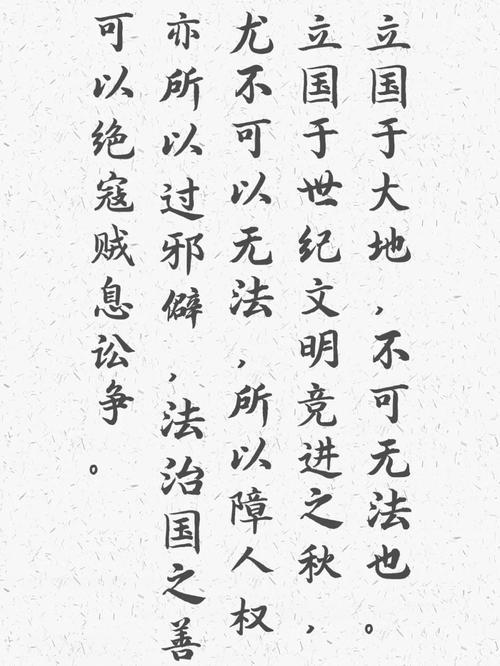 立国于大地,不可无法也。
立国于世纪文明竞进之秋,
尤不可以无法,所以障人权
亦所以过邪僻,法治国之善
可以绝寇贼息讼争。